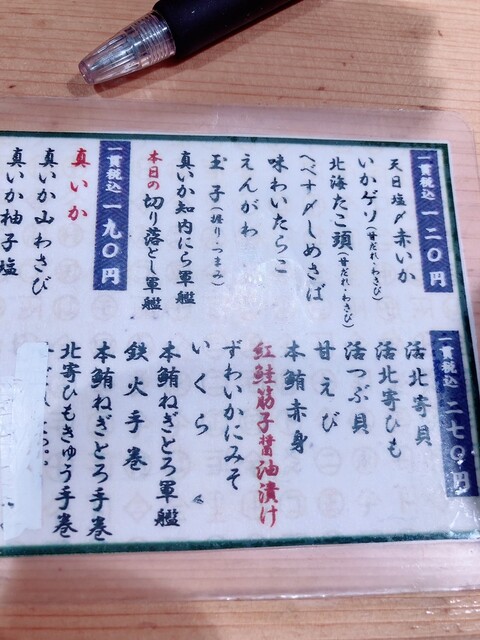 一貫税込 一二〇円
天日塩〆赤いか
いかゲソ(甘だれ・わさび)
北海たこ頭(甘だれ・わさび)
へべす〆しめさば
味わいたらこ
えんがわ
玉子(握り・つまみ)
真いか知内にら軍艦
本日の切り落とし軍艦
一貫税込 一九〇円
真いか
真いか山わさび
真いか柚子塩
一貫税込 二七〇円
活北寄貝
活北寄ひも
活つぶ貝
甘えび
本鮪赤身
紅鮭筋子醤油漬け
ずわいかにみそ
いくら
本鮪ねぎとろ軍艦
鉄火手巻
本鮪ねぎとろ手巻
北寄ひもきゅう手巻